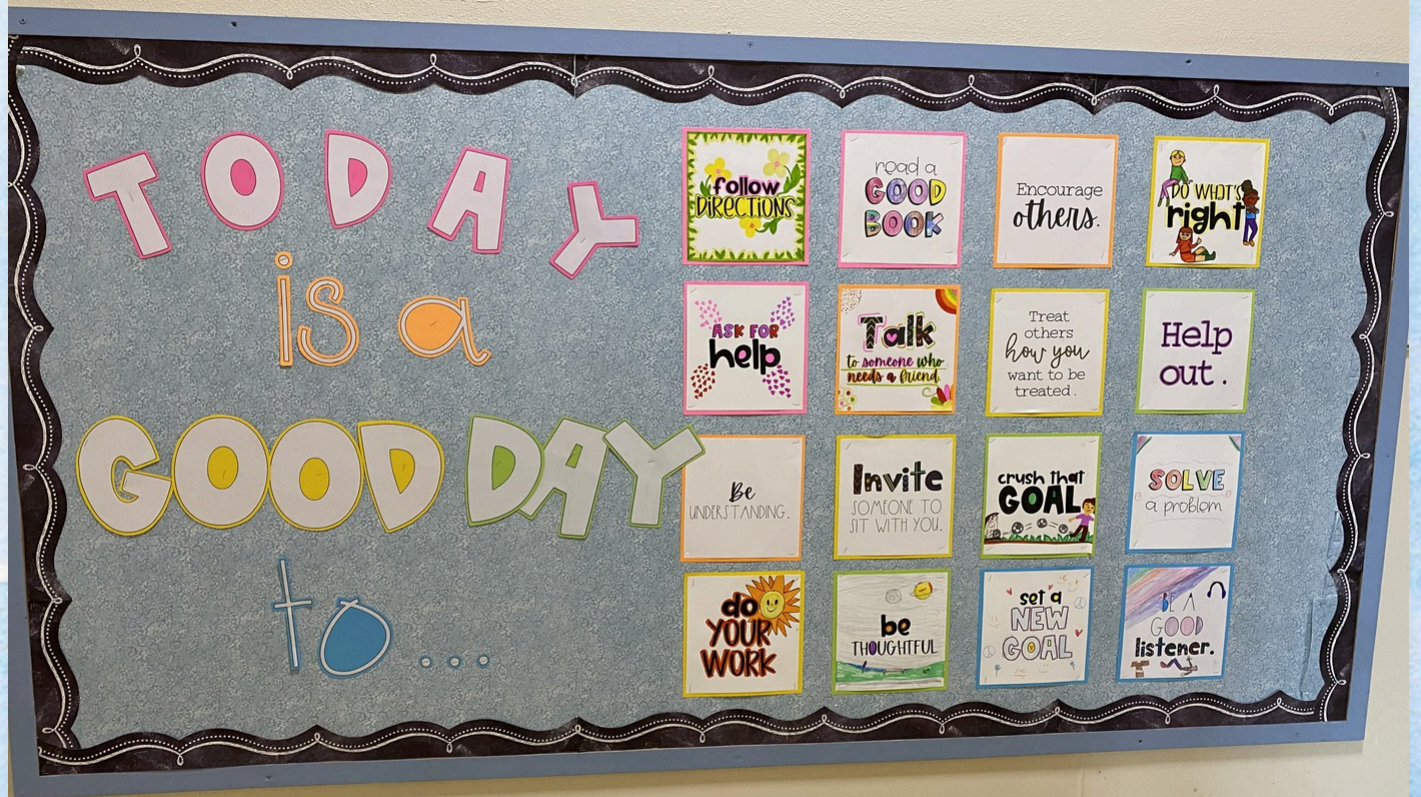 TODAY
is a
GOOD DAY
to...
follow
DIRECTIONS
read a
GOOD
BOOK
Encourage
others.
DO WHAT'S
right
ASK FOR
help
Talk
to someone who
needs a friend.
Treat
others
how you
want to be
treated.
Help
out.
Be
UNDERSTANDING.
Invite
SOMEONE TO
SIT WITH YOU.
crush that
GOAL
SOLVE
a problem
do
YOUR
WORK
be
THOUGHTFUL
set a
NEW
GOAL
BE A
GOOD
listener.